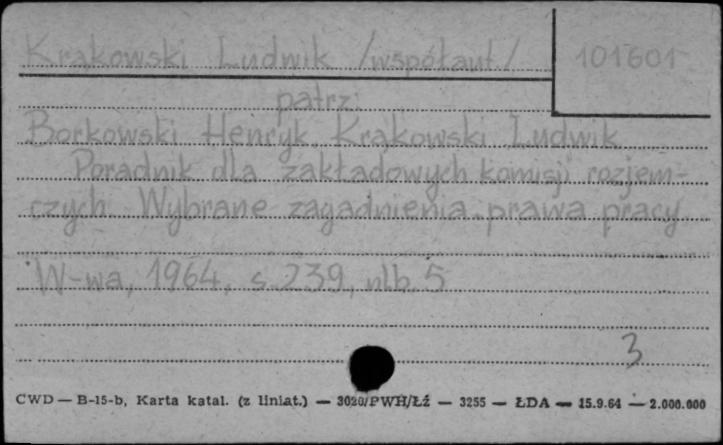 Krakowski Ludwik /współaut/ 101601
patrz:
Borkowski Henryk, Krakowski Ludwik
Poradnik dla zakładowych komisji rozjem-
czych Wybrane zagadnienia prawa pracy
W-wa, 1964, s. 239, nlb. 5
3
CWD — B-15-b, Karta katal. (z liniat.) — 3020/PWH/Łź — 3255 — ŁDA — 15.9.64 — 2.000.000